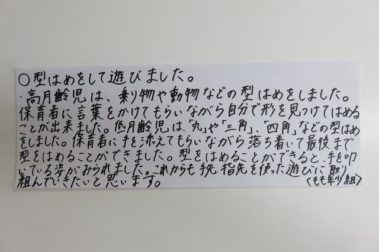 ○型はめをして遊びました。
・高月齢児は、乗り物や動物などの型はめをしました。
保育者に言葉をかけてもらいながら自分で形を見つけてはめる
ことが出来ました。低月齢児は、「丸」や「三角」、「四角」などの型はめ
をしました。保育者に手を添えてもらいながら落ち着いて最後まで
型をはめることができました。型をはめることができると、手を叩
いている姿がみられました。これからも手先、指先を使った遊びに取り
組んでいきたいと思います。
(もも組)